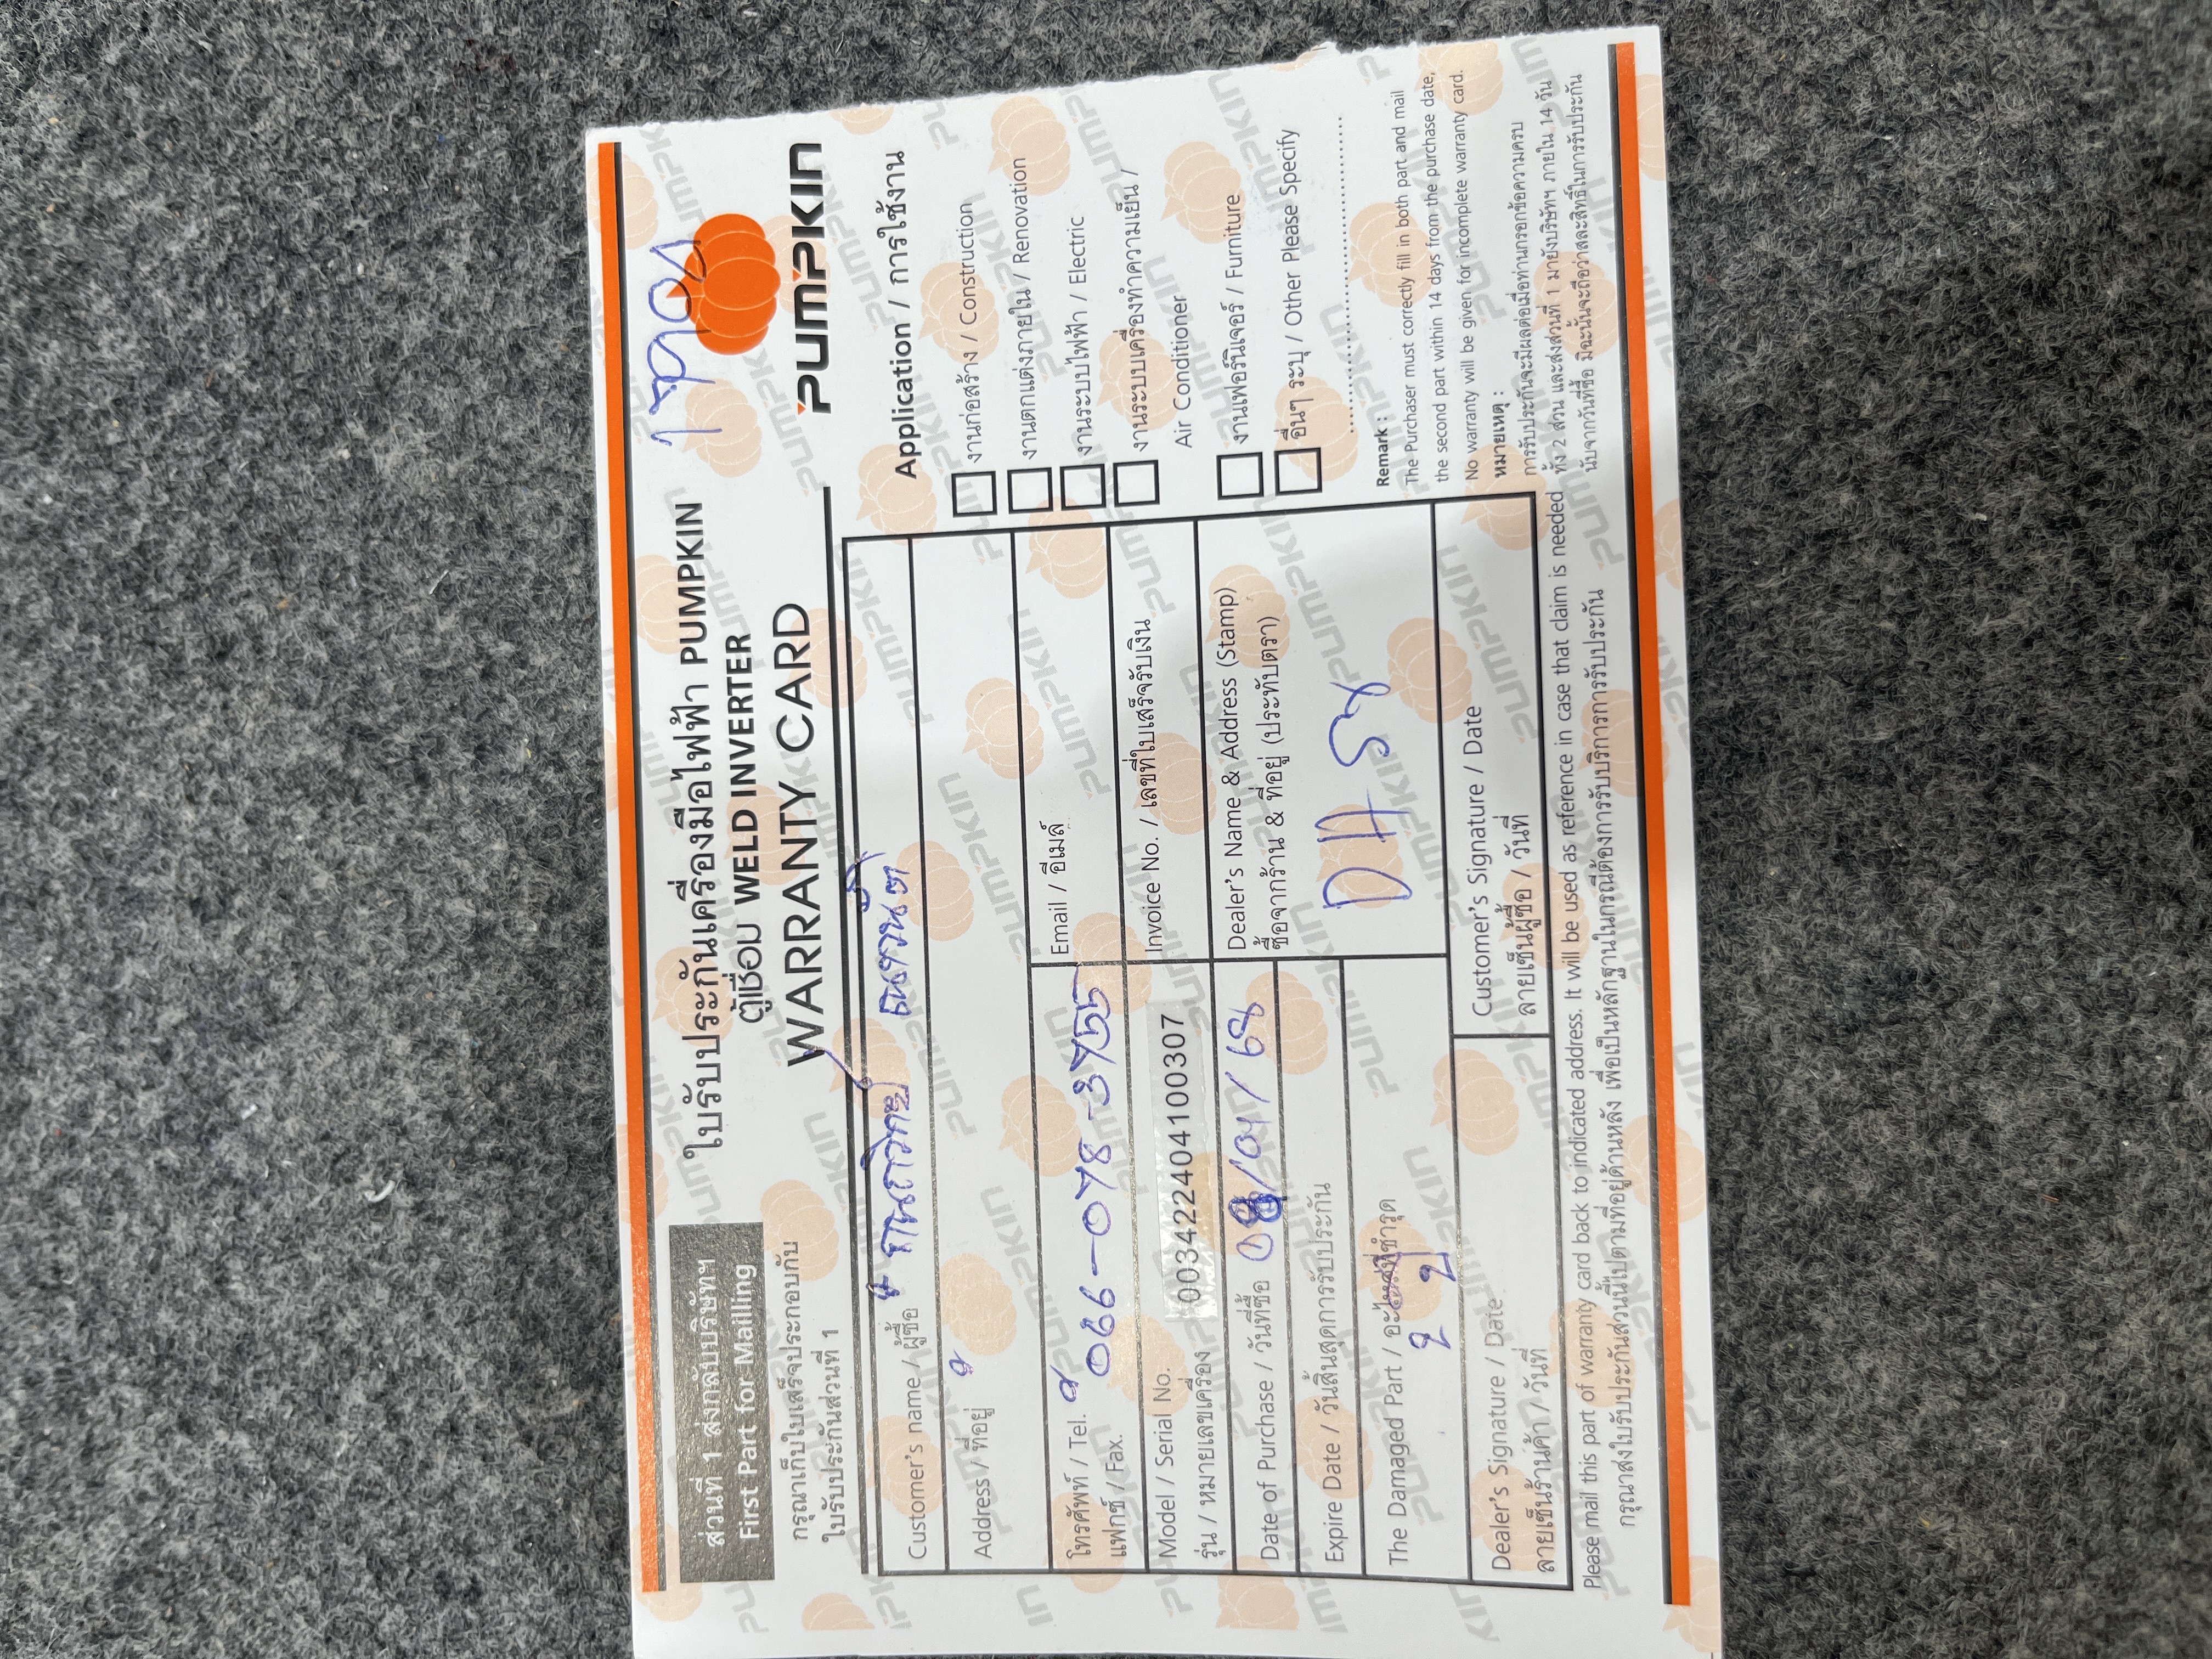 ส่วนที่ 1 ส่งกลับบริษัทฯ
First Part for Mailling
กรุณาเก็บใบเสร็จประกอบกับ
ใบรับประกันส่วนที่ 1
ใบรับประกันเครื่องมือไฟฟ้า PUMPKIN
ตู้เชื่อม WELD INVERTER
WARRANTY CARD
PUMPKIN
Customer's name / ผู้ซื้อ
Address / ที่อยู่
โทรศัพท์ / Tel. 066-078-3755
แฟกซ์ / Fax.
Email / อีเมล์
Model / Serial No.
รุ่น / หมายเลขเครื่อง 003422404100307
Invoice No. / เลขที่ใบเสร็จรับเงิน
Date of Purchase / วันที่ซื้อ 08/04/68
Dealer's Name & Address (Stamp)
ซื้อจากร้าน & ที่อยู่ (ประทับตรา)
Expire Date / วันสิ้นสุดการรับประกัน
The Damaged Part / อะไหล่ที่ชำรุด
2 ปี
Dealer's Signature / Date
ลายเซ็นร้านค้า / วันที่
Customer's Signature / Date
ลายเซ็นผู้ซื้อ / วันที่
Application / การใช้งาน
งานก่อสร้าง / Construction
งานตกแต่งภายใน / Renovation
งานระบบไฟฟ้า / Electric
งานระบบเครื่องทำความเย็น /
Air Conditioner
งานเฟอร์นิเจอร์ / Furniture
อื่นๆ ระบุ / Other Please Specify
Remark :
The Purchaser must correctly fill in both part and mail
the second part within 14 days from the purchase date,
No warranty will be given for incomplete warranty card.
หมายเหตุ :
การรับประกันจะมีผลต่อเมื่อท่านกรอกข้อความครบ
ทั้ง 2 ส่วน และส่งส่วนที่ 1 มายังบริษัทฯ ภายใน 14 วัน
นับจากวันที่ซื้อ มิฉะนั้นจะถือว่าสละสิทธิ์ในการรับประกัน
Please mail this part of warranty card back to indicated address. It will be used as reference in case that claim is needed
กรุณาส่งใบรับประกันส่วนนี้ไปตามที่อยู่ด้านหลัง เพื่อเป็นหลักฐานในกรณีต้องการรับบริการการรับประกัน